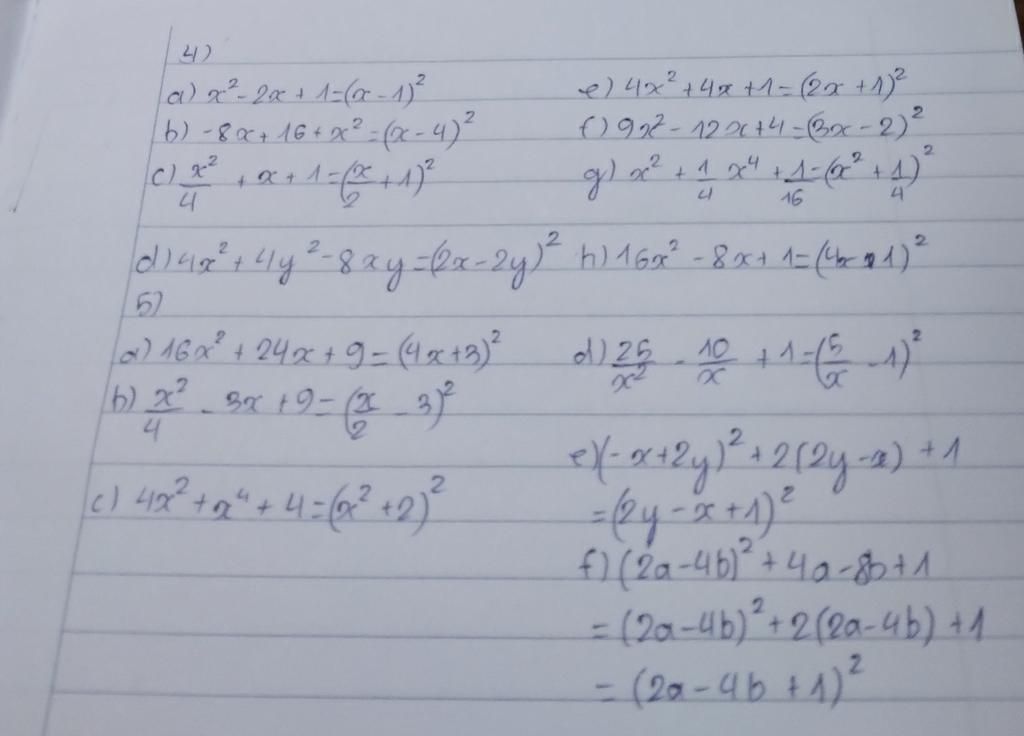 4)
a) x² - 2x + 1 = (x - 1)²
b) -8x + 16 + x² = (x - 4)²
c) x²/4 + x + 1 = (x/2 + 1)²
d) 4x² + 4y² - 8xy = (2x - 2y)²
e) 4x² + 4x + 1 = (2x + 1)²
f) 9x² - 12x + 4 = (3x - 2)²
g) x² + 1/4 x⁴ + 1/16 = (x² + 1/4)²
h) 16x² - 8x + 1 = (4x - 1)²
5)
a) 16x² + 24x + 9 = (4x + 3)²
b) x²/4 - 3x + 9 = (x/2 - 3)²
c) 4x² + x⁴ + 4 = (x² + 2)²
d) 25/x² - 10/x + 1 = (5/x - 1)²
e) (-x + 2y)² + 2(2y - x) + 1
= (2y - x + 1)²
f) (2a - 4b)² + 4a - 8b + 1
= (2a - 4b)² + 2(2a - 4b) + 1
= (2a - 4b + 1)²